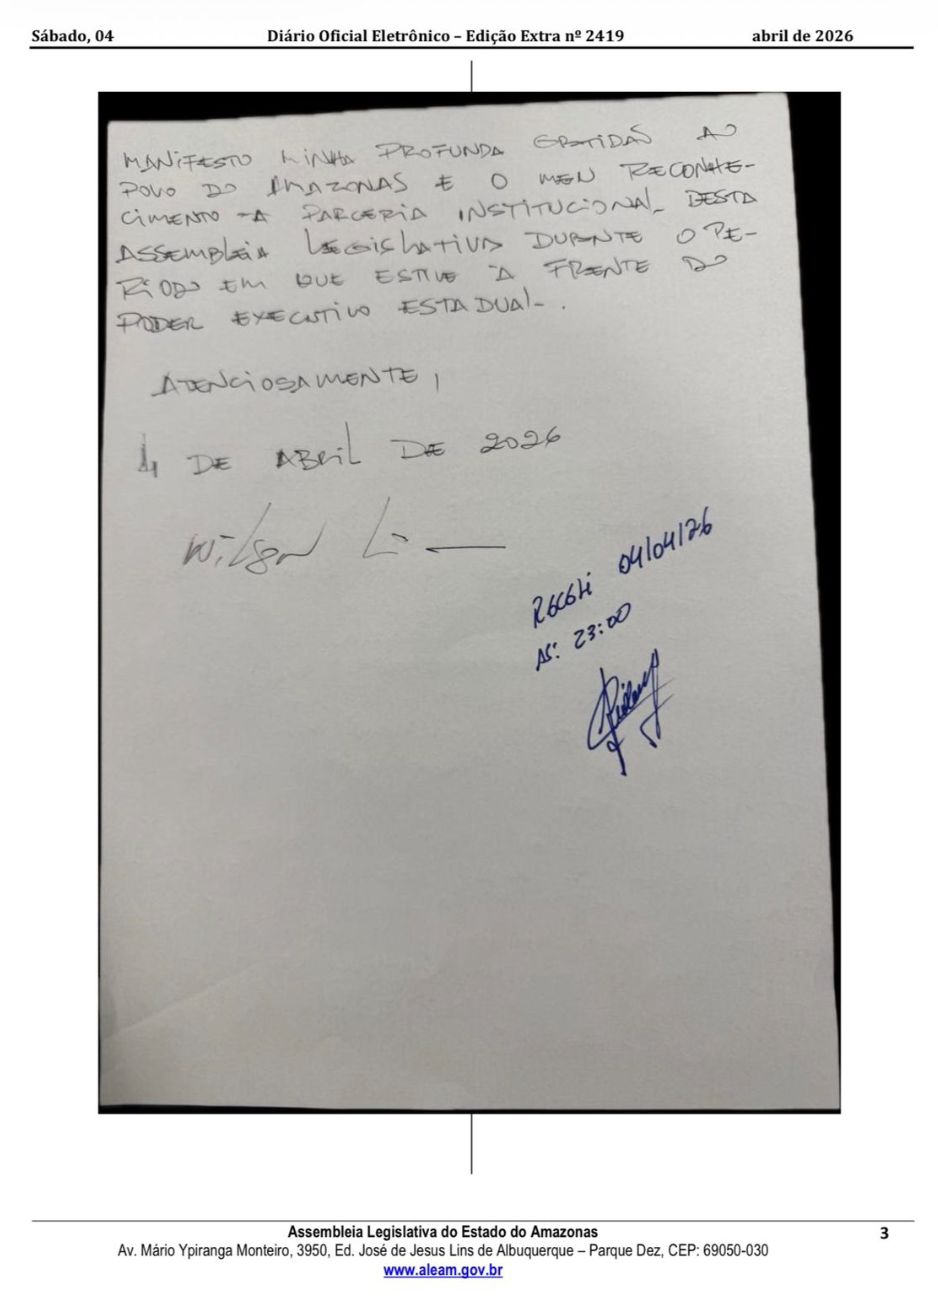 Sábado, 04 Diário Oficial Eletrônico – Edição Extra nº 2419 abril de 2026
MANIFESTO MINHA PROFUNDA GRATIDÃO AO
POVO DO AMAZONAS E O MEU RECONHE-
CIMENTO A PARCERIA INSTITUCIONAL DESTA
ASSEMBLEIA LEGISLATIVA DURANTE O PE-
RÍODO EM QUE ESTIVE À FRENTE DO
PODER EXECUTIVO ESTADUAL.
ATENCIOSAMENTE,
4 DE ABRIL DE 2026
Wilson Li
RECEBI 04/04/26
AS: 23:00
Assembleia Legislativa do Estado do Amazonas 3
Av. Mário Ypiranga Monteiro, 3950, Ed. José de Jesus Lins de Albuquerque – Parque Dez, CEP: 69050-030
www.aleam.gov.br